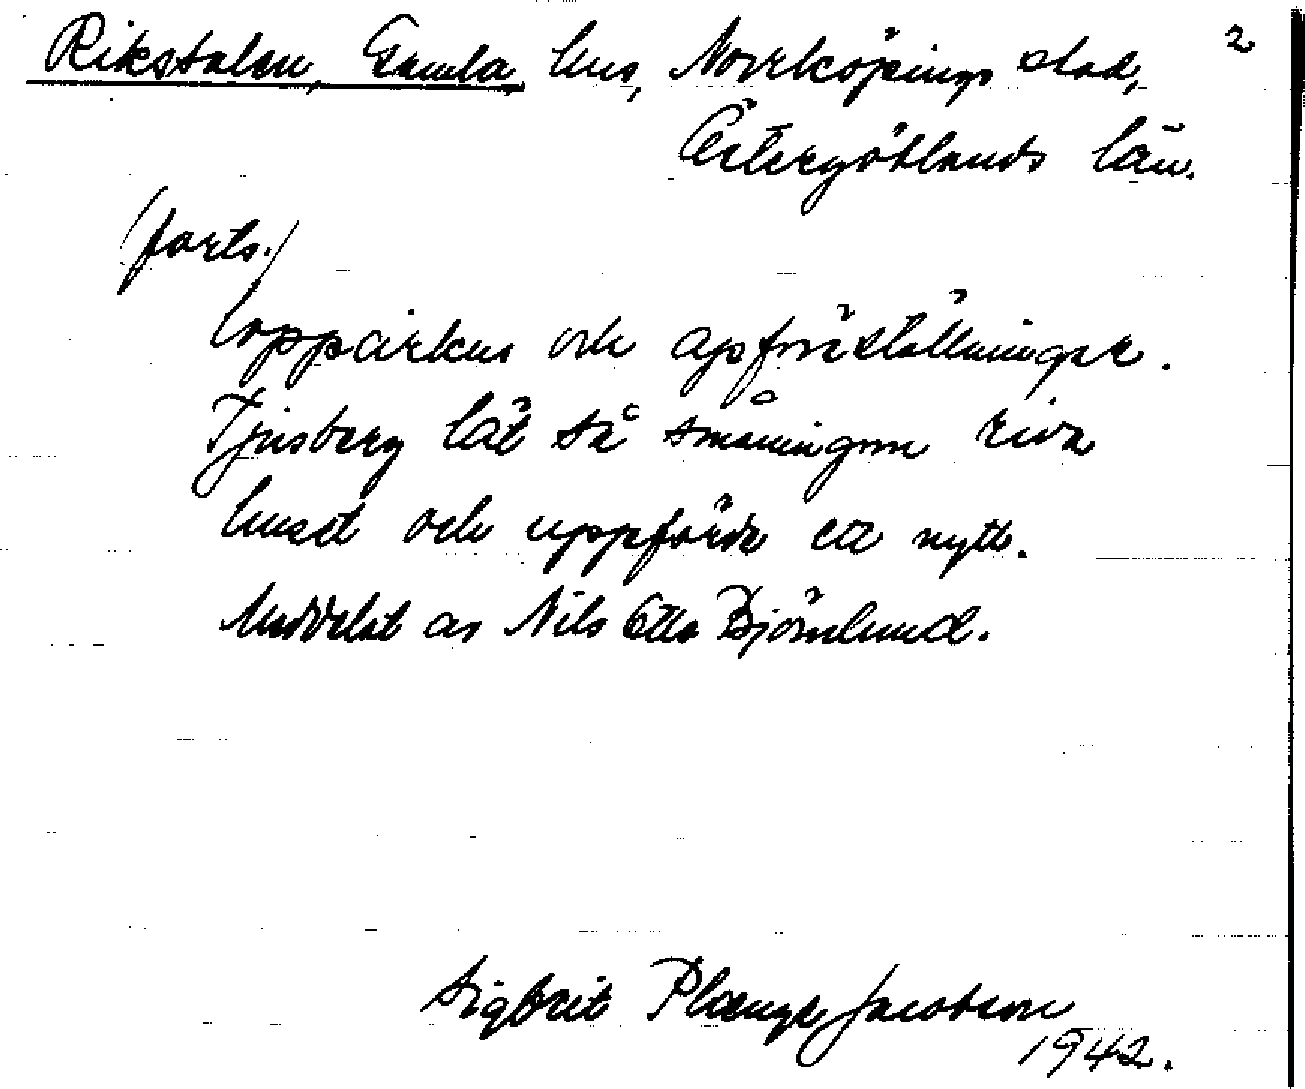 Rikstalen, Gamla, hus, Norrköpings stad, 2
Östergötlands län.
(forts.)
loppcirkus och apföreställningar.
Tjusberg lät så småningom riva
huset och uppförde ett nytt.
Meddelat av Nils Otto Björnlund.
Sigbrit Plænge Jacobson
1942.